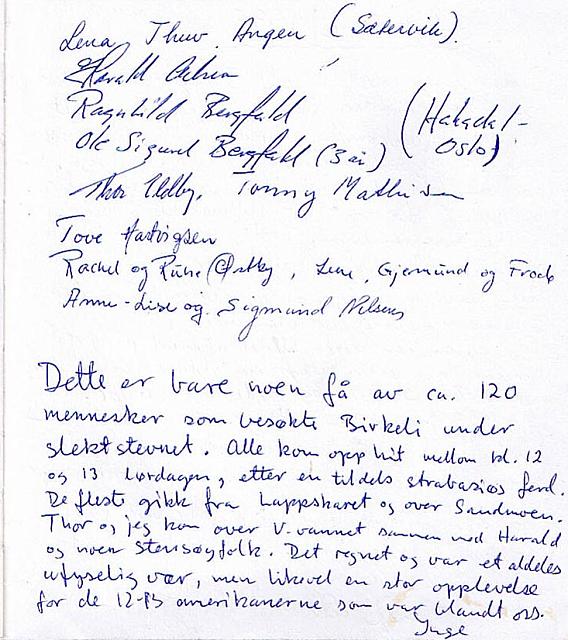 Lena Thuv Angen (Sætervik).
Harald
Ragnhild Bergfald (Hakadal-
Ole Sigurd Bergfald (3 år) Oslo)
Thor Uldby, Tonny Mathisen
Tove Hartvigsen
Rachel og Rune Østby, Lene, Gjermund og Frode
Anne-Lise og Sigmund Nilsen
Dette er bare noen få av ca. 120
mennesker som besøkte Birkeli under
slektstevnet. Alle kom opp hit mellom kl. 12
og 13 lørdagen, etter en tildels strabasiøs ferd.
De fleste gikk fra Lappskaret og over Sandmoen.
Thor og jeg kom over V-vannet sammen med Harald
og noen Stensøyfolk. Det regnet og var et aldeles
ufyselig vær, men likevel en stor opplevelse
for de 12-13 amerikanerne som var blandt oss.
Inge